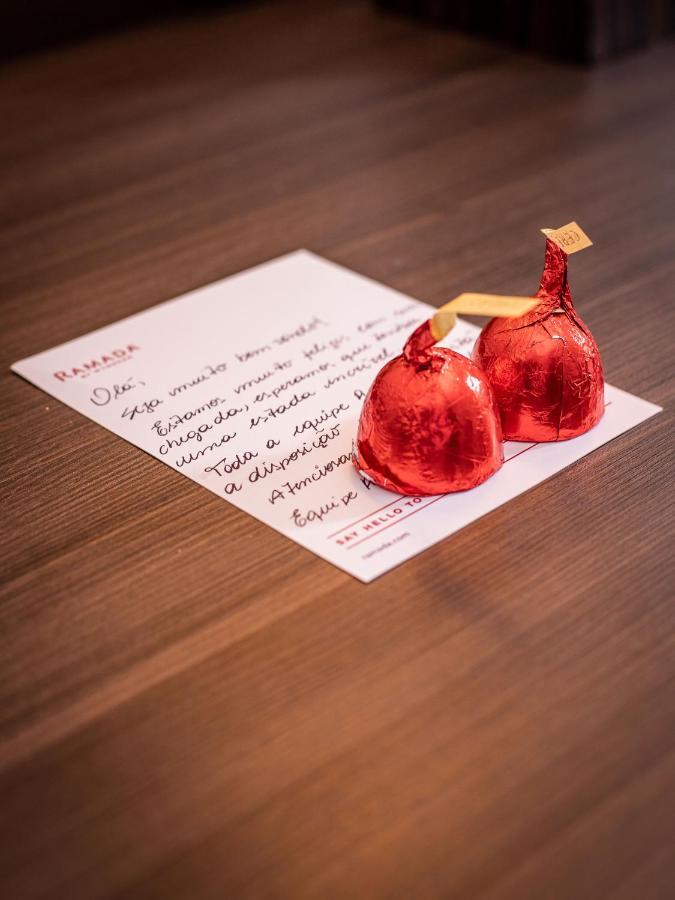 RAMADA
BY WYNDHAM
Olá,
Seja muito bem vindo!
Estamos muito feliz, com sua
chegada, esperamos que tenha
uma estada incrível
Toda a equipe
a disposição
Equipe
SAY HELLO TO
ramada.com